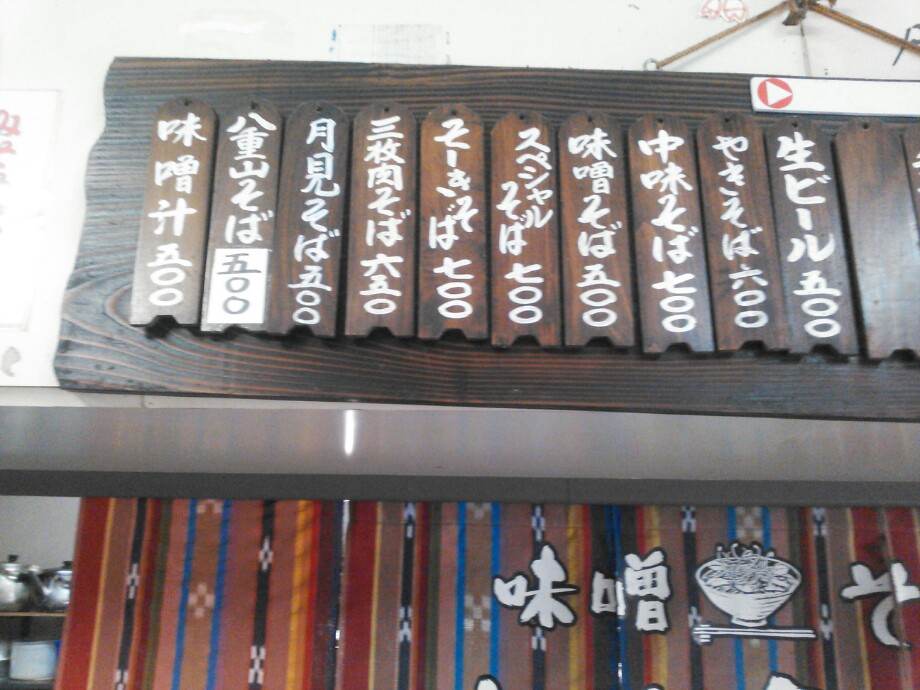 味噌汁 五〇〇
八重山そば 五〇〇
月見そば 五〇〇
三枚肉そば 六五〇
そーきそば 七〇〇
スペシャルそば 七〇〇
味噌そば 五〇〇
中味そば 七〇〇
やきそば 六〇〇
生ビール 五〇〇
味噌そ